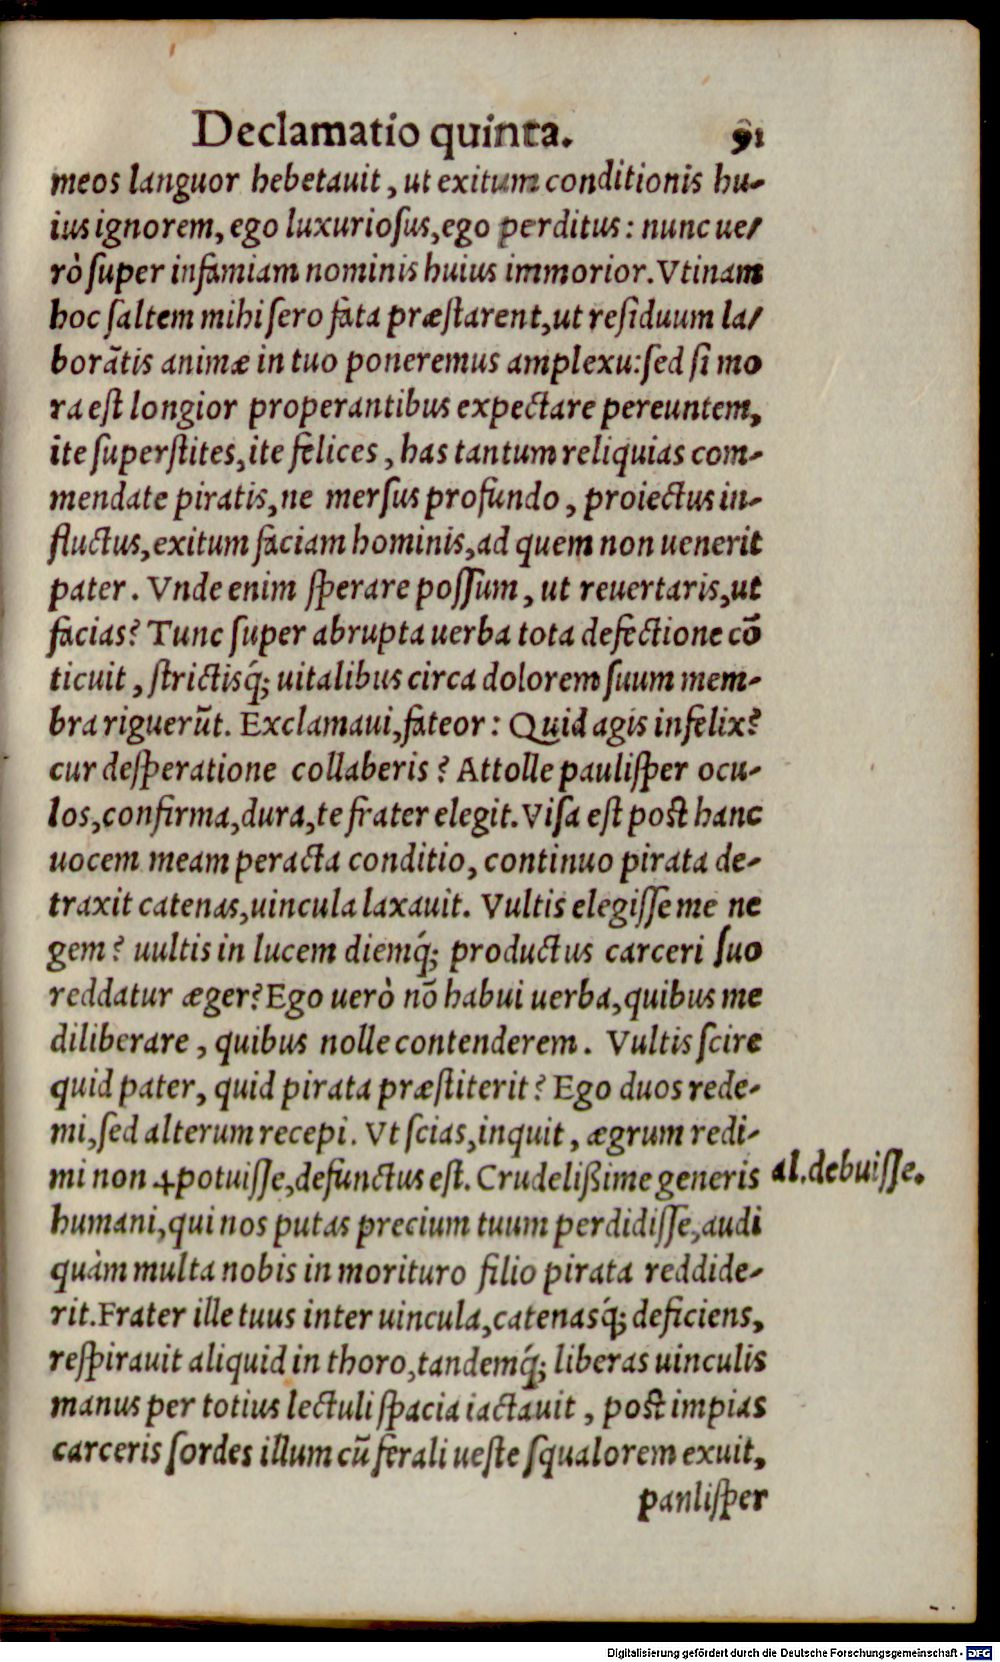 Declamatio quinta. 91
meos languor hebetauit, ut exitum conditionis hu-
ius ignorem, ego luxuriosus, ego perditus: nunc ue-
rò super infamiam nominis huius immorior. Vtinam
hoc saltem mihi sero fata præstarent, ut residuum la-
borãtis animæ in tuo poneremus amplexu: sed si mo
ra est longior properantibus expectare pereuntem,
ite superstites, ite felices, has tantum reliquias com-
mendate piratis, ne mersus profundo, proiectus in-
fluctus, exitum faciam hominis, ad quem non uenerit
pater. Vnde enim sperare possum, ut reuertaris, ut
facias? Tunc super abrupta uerba tota defectione cõ
ticuit, strictisq́; uitalibus circa dolorem suum mem-
bra riguerũt. Exclamaui, fateor: Quid agis infelix?
cur desperatione collaberis? Attolle paulisper ocu-
los, confirma, dura, te frater elegit. Visa est post hanc
uocem meam peracta conditio, continuo pirata de-
traxit catenas, uincula laxauit. Vultis elegisse me ne
gem? uultis in lucem diemq́; productus carceri suo
reddatur æger? Ego uerò nõ habui uerba, quibus me
diliberare, quibus nolle contenderem. Vultis scire
quid pater, quid pirata præstiterit? Ego duos rede-
mi, sed alterum recepi. Vt scias, inquit, ægrum redi-
mi non ⁂potuisse, defunctus est. Crudelißime generis
al. debuisse.
humani, qui nos putas precium tuum perdidisse, audi
quàm multa nobis in morituro filio pirata reddide-
rit. Frater ille tuus inter uincula, catenasq́; deficiens,
respirauit aliquid in thoro, tandemq́; liberas uinculis
manus per totius lectuli spacia iactauit, post impias
carceris sordes illum cũ ferali ueste squalorem exuit,
panlisper
Digitalisierung gefördert durch die Deutsche Forschungsgemeinschaft - DFG